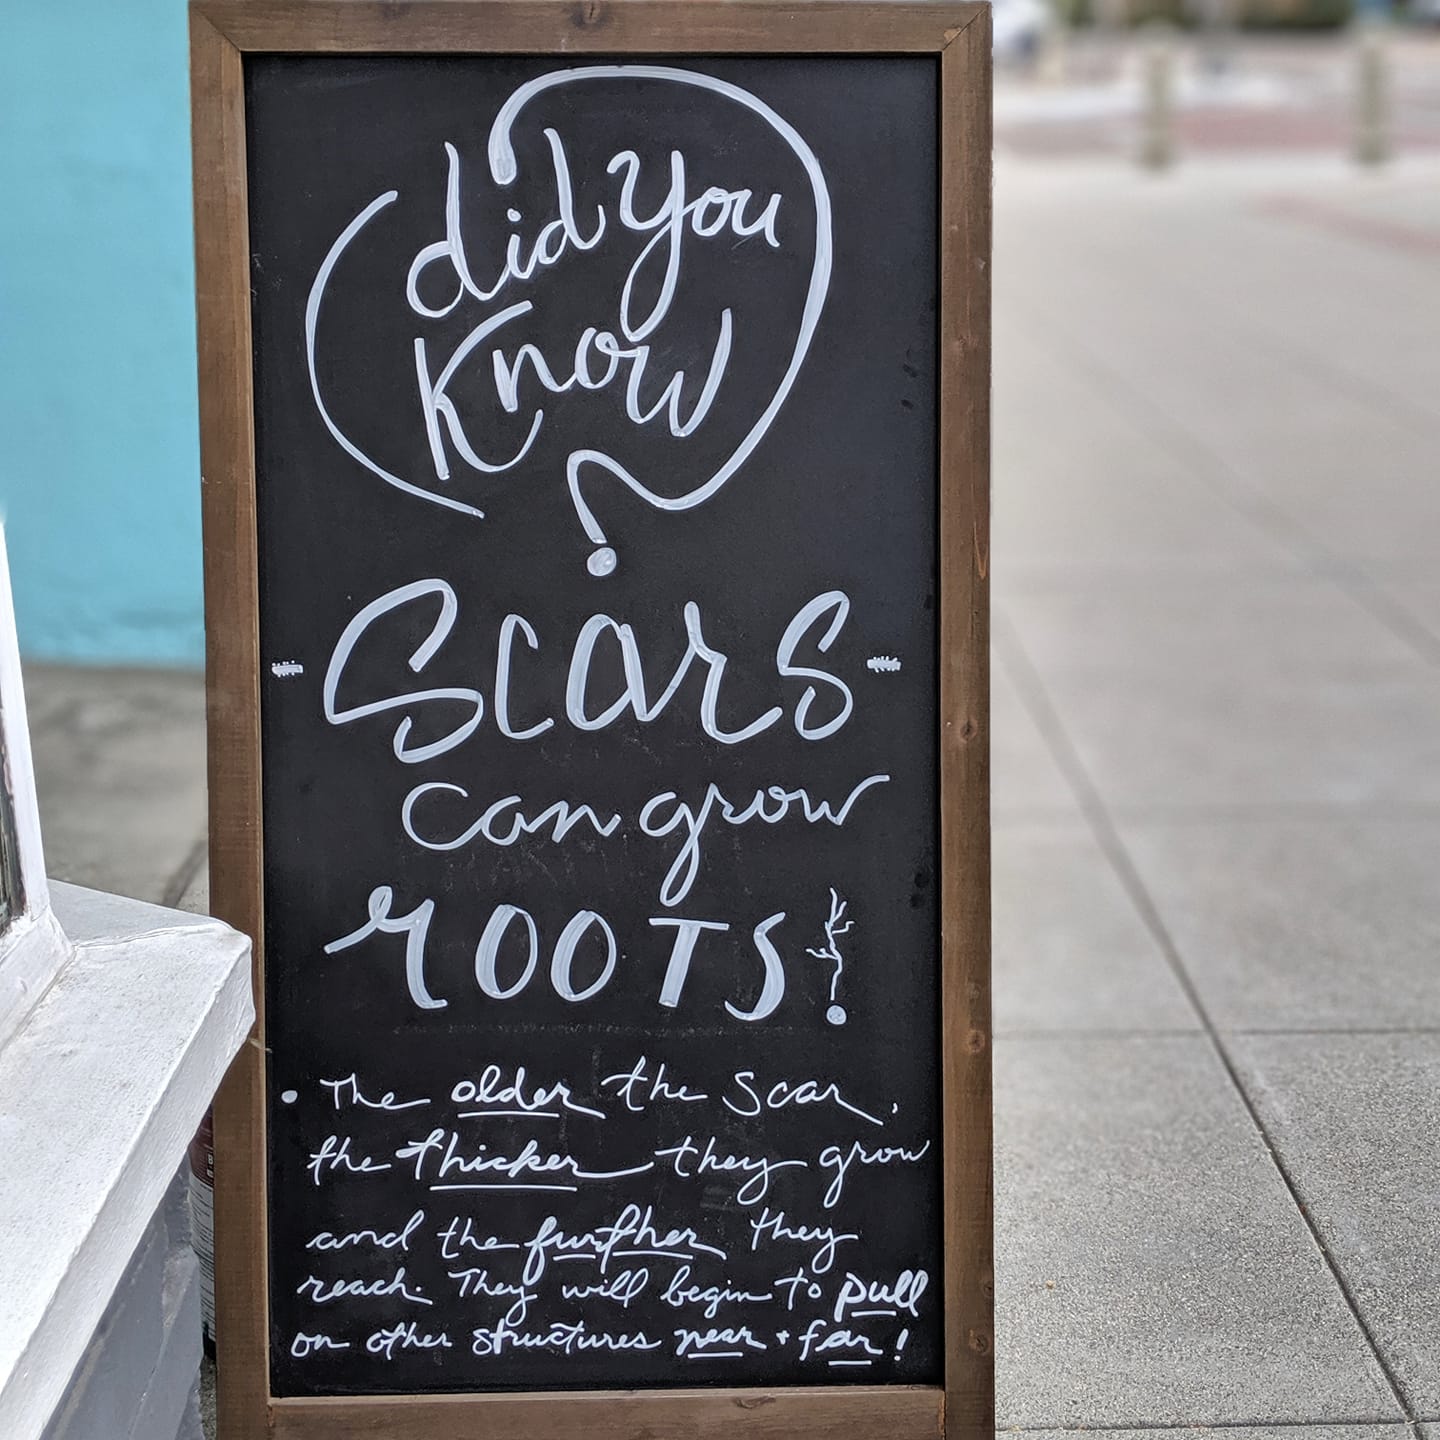 did you
know
?
- Scars -
can grow
roots!
• The older the scar,
the thicker they grow
and the further they
reach. They will begin to pull
on other structures near + far!